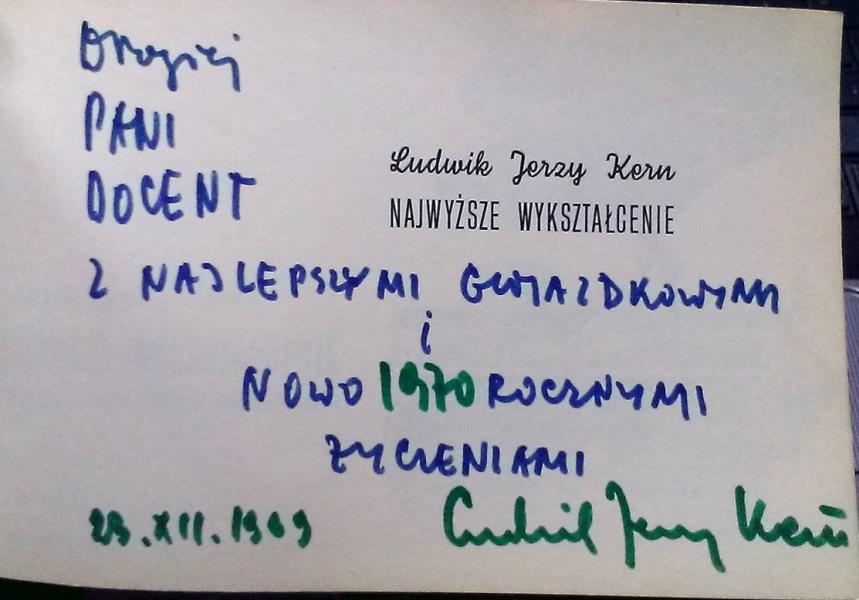 Drogiej
PANI
DOCENT
Ludwik Jerzy Kern
NAJWYŻSZE WYKSZTAŁCENIE
Z NAJLEPSZYMI GWIAZDKOWYMI
i
NOWO 1970 ROCZNYMI
ŻYCZENIAMI
23.XII.1969
Ludwik Jerzy Kern